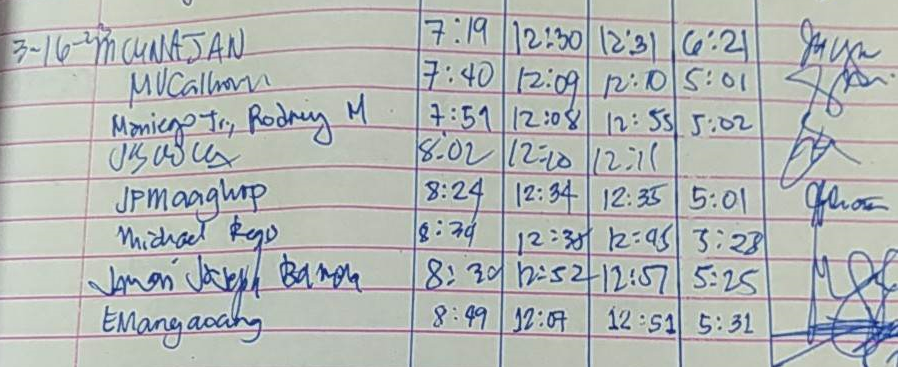 3-16-23 MCUNAJAN 7:19 12:30 12:31 6:21
MVCalhoun 7:40 12:09 12:10 5:01
Maniego Jr., Rodney M 7:51 12:08 12:55 5:02
8:02 12:10 12:11
JPMaaghop 8:24 12:34 12:35 5:01
Michael Rego 12:45
Joseph 8:30 12:52 12:57 5:25
EMangaoang 8:49 12:07 12:51 5:31